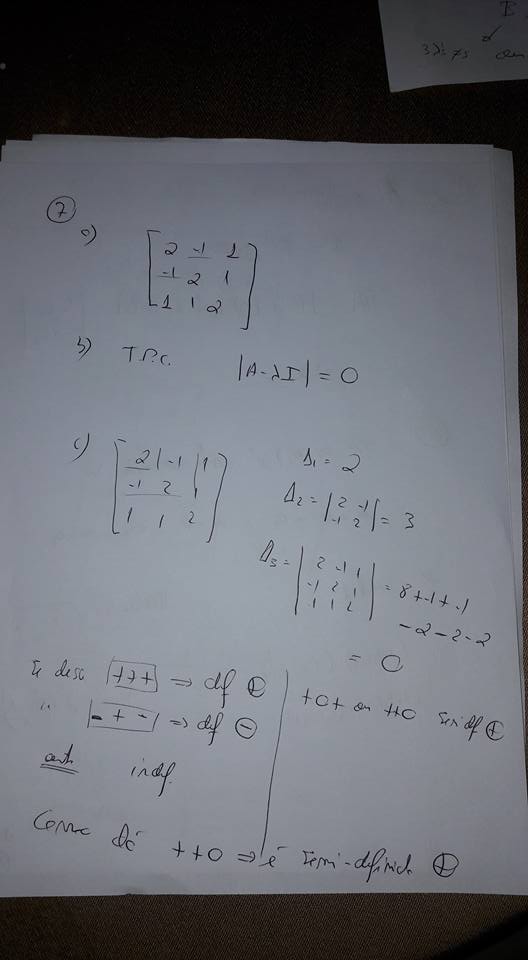 3 λ's ≠s
7
a) [ 2 -1 1
-1 2 1
1 1 2 ]
b) T.P.C. |A-λI| = 0
c) [ 2 | -1 | 1
-1 2 | 1
1 1 2 ]
Δ1 = 2
Δ2 = | 2 -1
-1 2 | = 3
Δ3 = | 2 -1 1
-1 2 1
1 1 2 | = 8 + -1 + -1
-2 -2 -2
= 0
Se desc +++ ⇒ def ⊕
" - + - ⇒ def ⊖
indef.
+0+ ou ++0 semidf ⊕
Como dá ++0 ⇒ é semi-definida ⊕